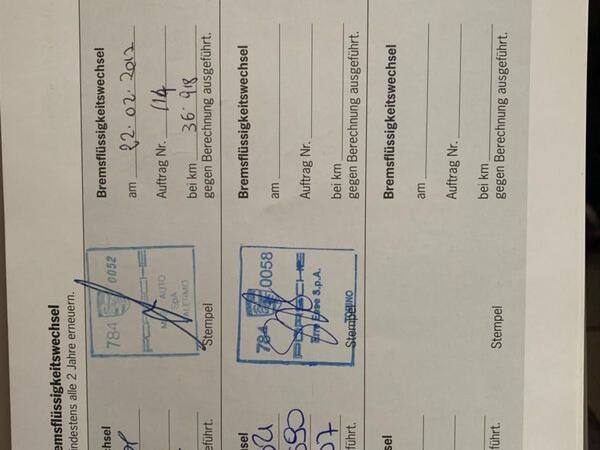 emsflüssigkeitswechsel
indestens alle 2 Jahre erneuern.
chsel
führt.
784 0052
PORSCHE
AUTO
SpA
Stempel
Bremsflüssigkeitswechsel
am 22.02.2012
Auftrag Nr. 114
bei km 36.918
gegen Berechnung ausgeführt.
hsel
07
führt.
784 0058
PORSCHE
S.p.A.
Stempel
Bremsflüssigkeitswechsel
am
Auftrag Nr.
bei km
gegen Berechnung ausgeführt.
chsel
führt.
Stempel
Bremsflüssigkeitswechsel
am
Auftrag Nr.
bei km
gegen Berechnung ausgeführt.